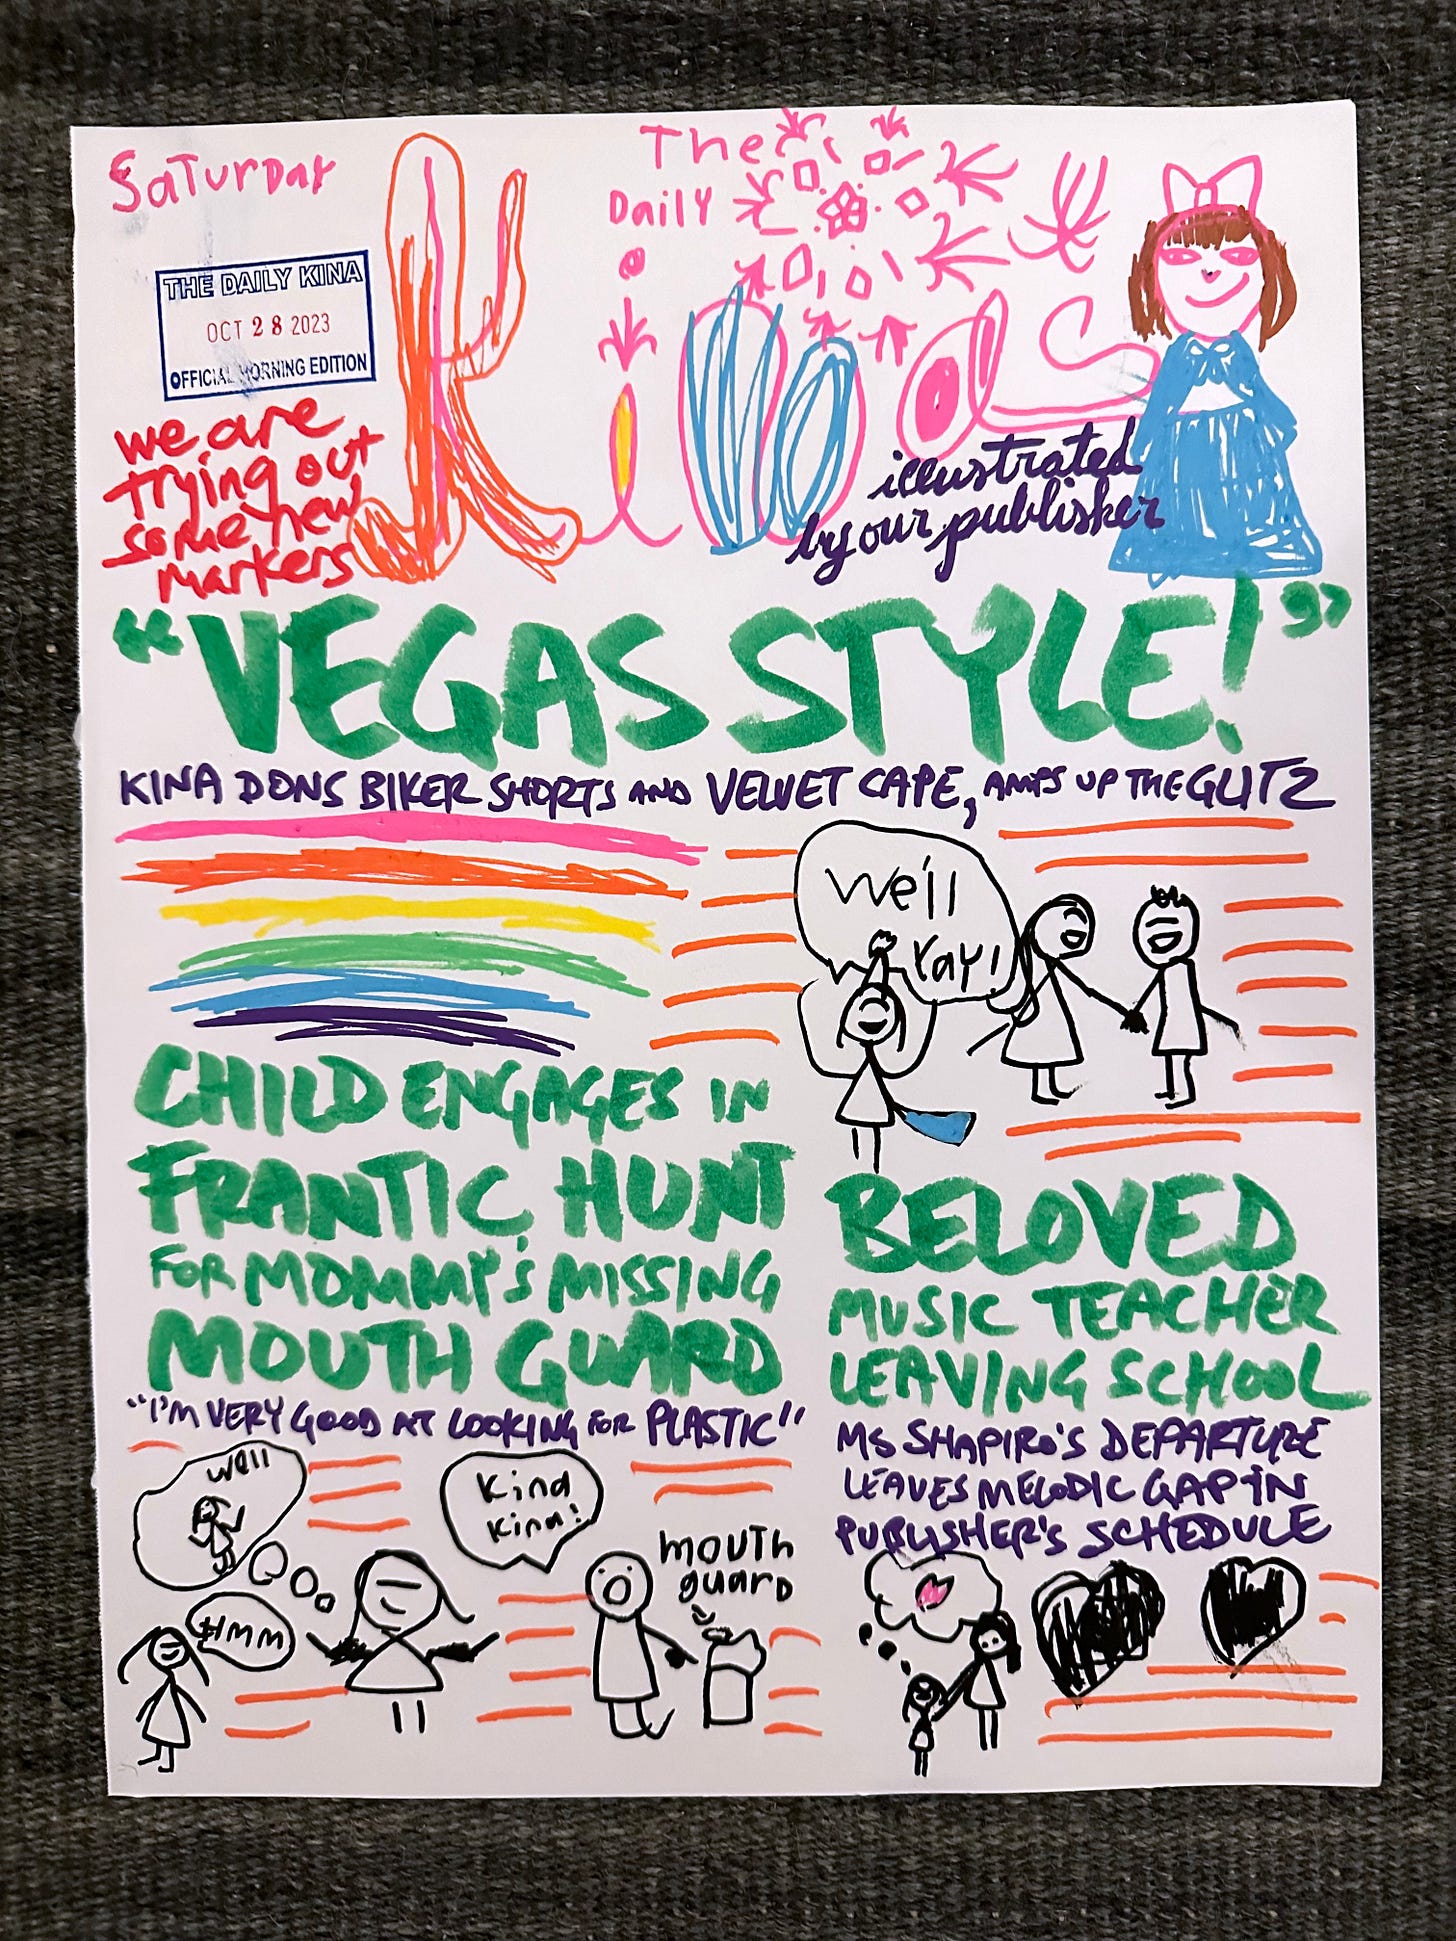 Saturday
The
Daily
kina
THE DAILY KINA
OCT 28 2023
OFFICIAL MORNING EDITION
we are
trying out
some new
markers
illustrated
by our publisher
"VEGAS STYLE!"
KINA DONS BIKER SHORTS AND VELVET CAPE, AMPS UP THE GLITZ
We'll
Yay!
CHILD ENGAGES IN
FRANTIC HUNT
FOR MOMMY'S MISSING
MOUTH GUARD
"I'M VERY GOOD AT LOOKING FOR PLASTIC"
well
Hmm
Kina
Kina!
mouth
guard
BELOVED
MUSIC TEACHER
LEAVING SCHOOL
MS SHAPIRO'S DEPARTURE
LEAVES MELODIC GAP IN
PUBLISHER'S SCHEDULE